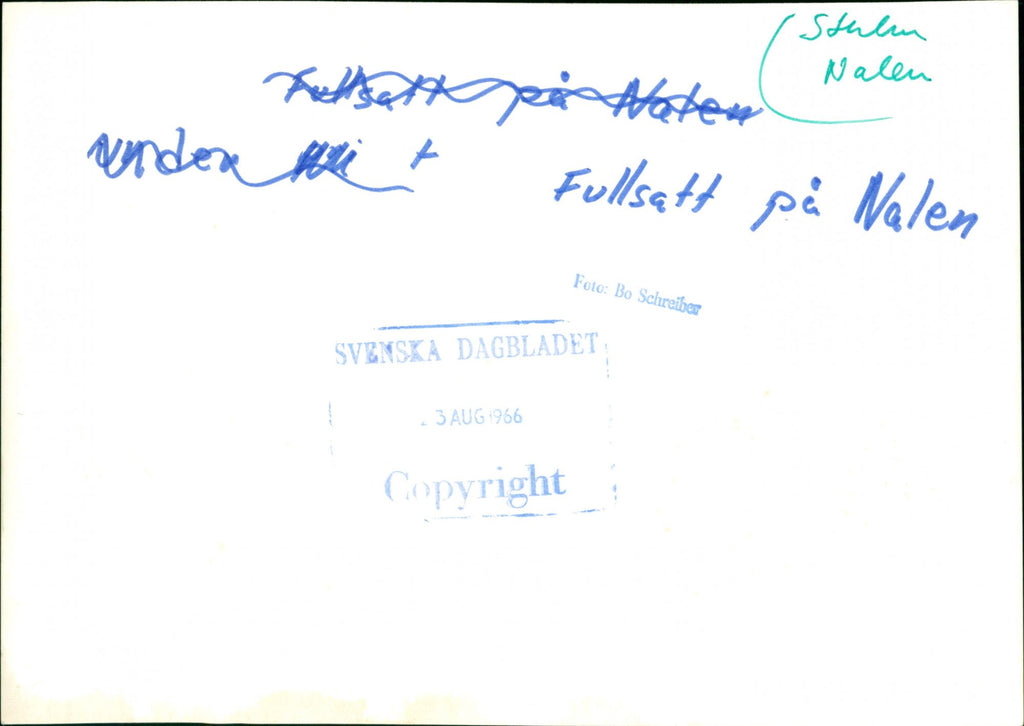 Sthlm
Nalen
Fullsatt på Nalen
Fullsatt på Nalen
Foto: Bo Schreiber
SVENSKA DAGBLADET
3 AUG 1966
Copyright